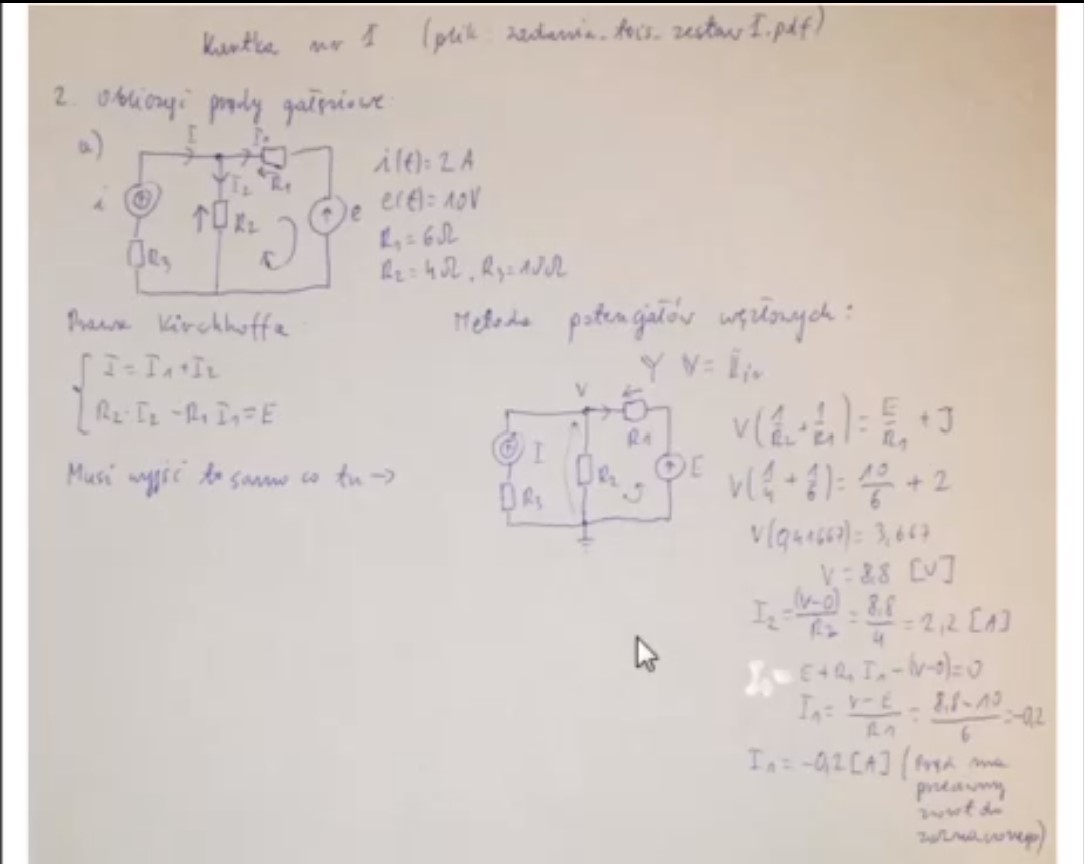 Kartka nr I (plik: zadania_tois_zestaw I.pdf)
2. Obliczyć prądy gałęziowe
a)
I I₁
I₂ R₁
i R₂ e
R₃
i(t) = 2A
e(t) = 10V
R₁ = 6Ω
R₂ = 4Ω, R₃ = 10Ω
Prawa Kirchhoffa
I = I₁ + I₂
R₂·I₂ - R₁I₁ = E
Musi wyjść to samo co tu →
Metoda potencjałów węzłowych:
Y V = I
V
R₁
I R₂ E
R₃
V(1/R₂ + 1/R₁) = E/R₁ + J
V(1/4 + 1/6) = 10/6 + 2
V(0,41667) = 3,667
V = 8,8 [V]
I₂ = (V-0)/R₂ = 8,8/4 = 2,2 [A]
E + R₁ I₁ - (V-0) = 0
I₁ = V-E/R₁ = 8,8-10/6 = -0,2
I₁ = -0,2 [A] (Prąd ma
przeciwny
zwrot do
zaznaczonego)